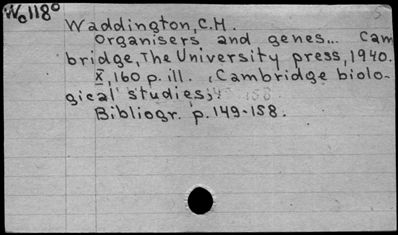 Wc118°
Waddington, C.H.
Organisers and genes... Cam
bridge, The University press, 1940.
X, 160 p. ill. (Cambridge biolo-
gical studies)
Bibliogr. p. 149-158.